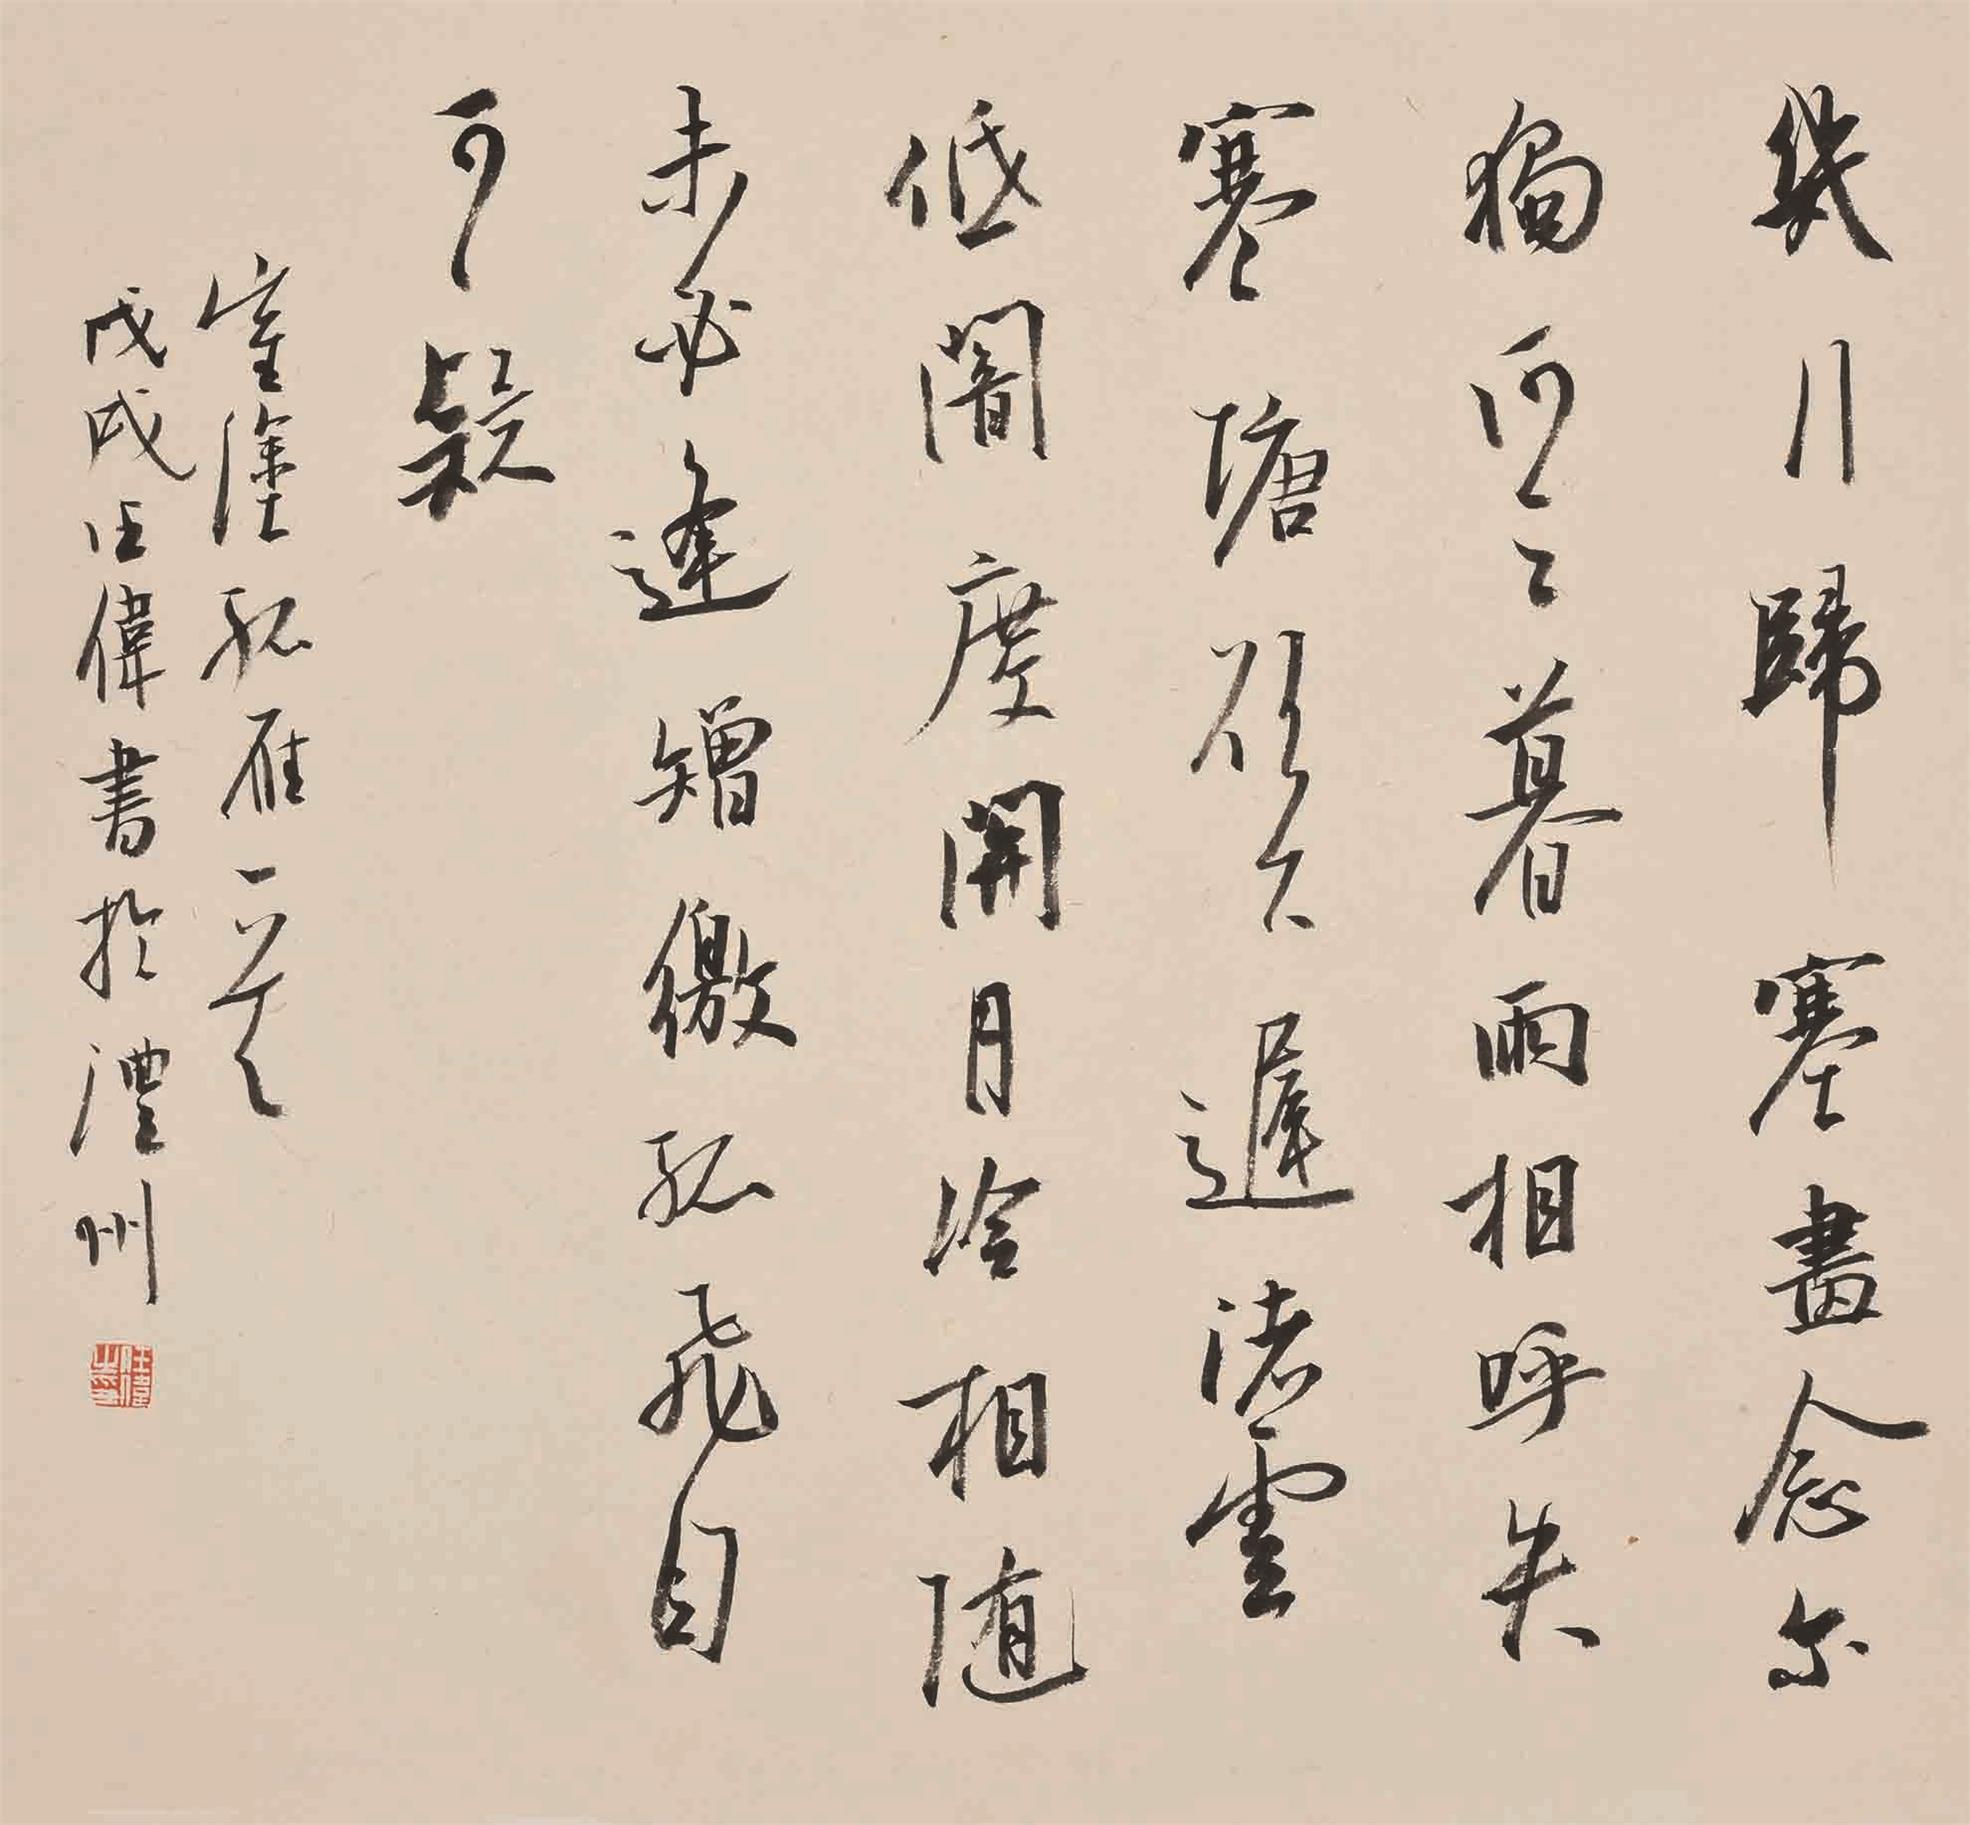 幾行歸塞盡念尔
獨何之暮雨相呼失
寒塘欲下遲渚雲
低闇度關月冷相随
未必逢矰繳孤飛自
可疑
崔塗孤雁一首
戊戌任偉書於澧州
任偉之印